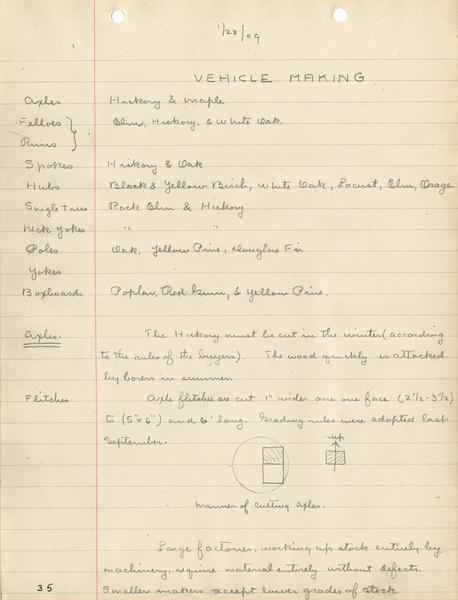 1/28/09
VEHICLE MAKING
Axles Hickory & Maple
Felloes } Elm, Hickory, & White Oak.
Rims
Spokes Hickory & Oak
Hubs Black & Yellow Birch, White Oak, Locust, Elm, Osage.
Single Trees Rock Elm & Hickory
Neck Yokes " "
Poles Oak, Yellow Pine, Douglas Fir
Yokes
Boxboards Poplar, Red Gum, & Yellow Pine.
Axles. The Hickory must be cut in the winter (according
to the rules of the buyers). The wood quickly is attacked
by borers in summer.
Flitches Axle flitches are cut 1" wider one one face (2½-3½)
to (5"x6") and 6' long. Grading rules were adopted last
September.
up
manner of cutting axles.
Large factories, working up stock entirely by
machinery, require material entirely without defects.
35 Smaller makers accept lower grades of stock.